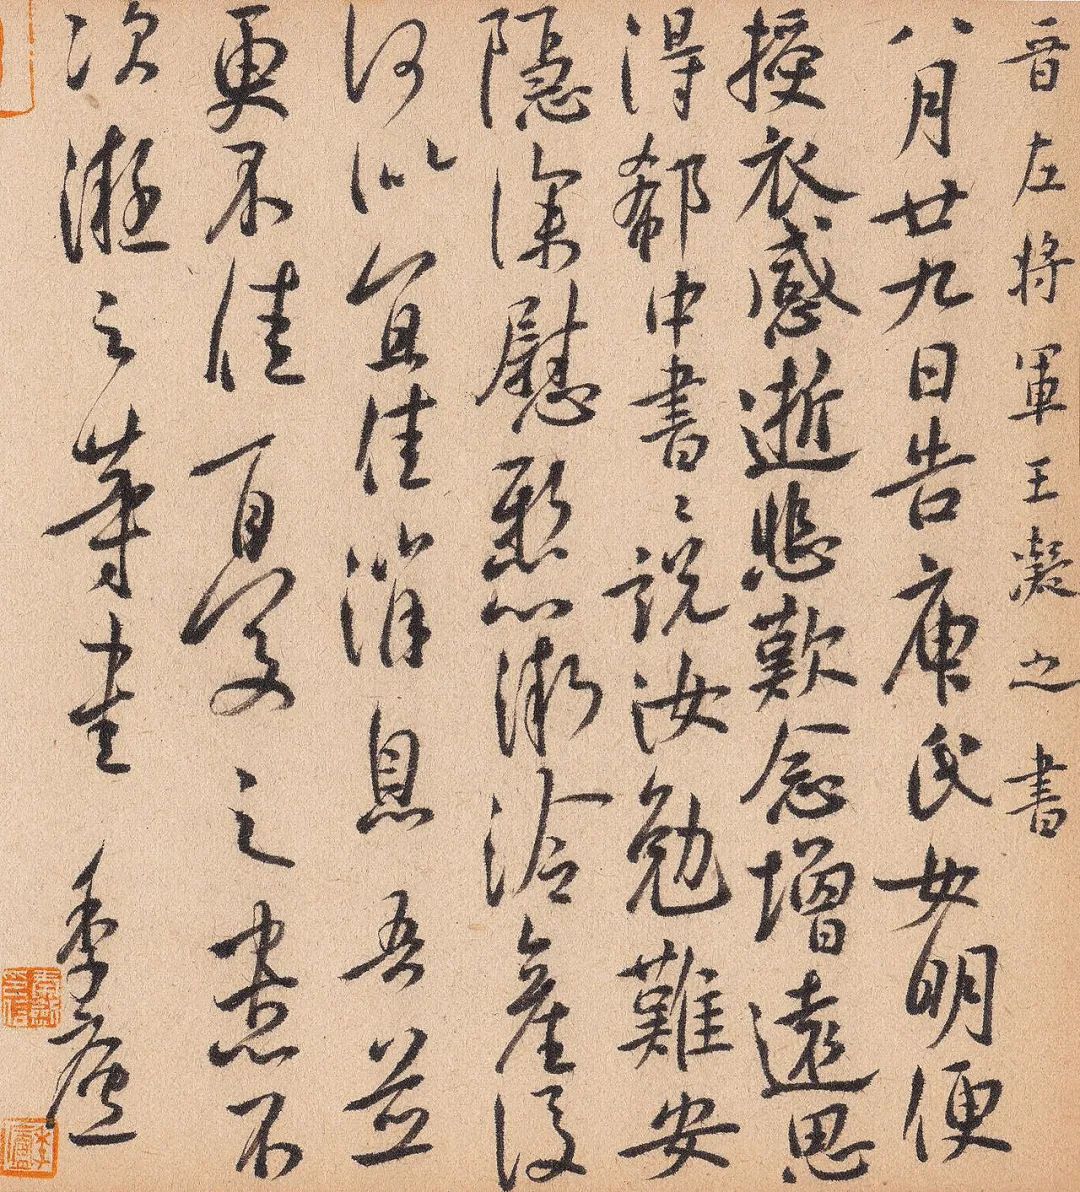 晋左将軍王凝之書
八月廿九日告庾氏女明便
授衣感逝悲歎念增遠思
得郗中書〻說汝勉難安
隱深慰懸心漸冷產後
何似宜佳消息吾並
更不佳憂之不
次凝之等書 季